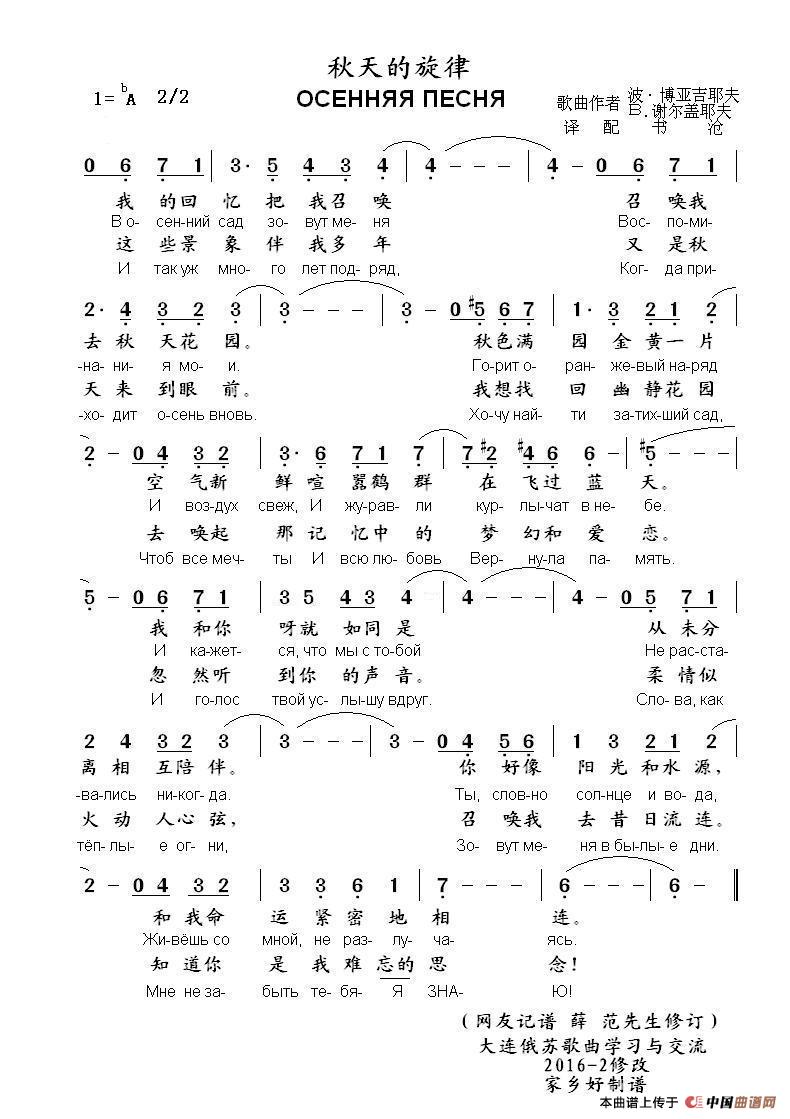 秋天的旋律
1=ᵇA 2/2
ОСЕННЯЯ ПЕСНЯ
歌曲作者 波·博亚吉耶夫
В.谢尔盖耶夫
译 配 书 沧
0 6 7 1 | 3· 5 4 3 4 | 4 - - - | 4 - 0 6 7 1 |
我 的回 忆 把 我召 唤 召 唤我
В о- сен-ний сад зо- вут ме- ня Вос- по-ми-
这 些景 象 伴 我多 年 又 是秋
И так уж мно- го лет под- ряд, Ког- да при-
2· 4 3 2 3 | 3 - - - | 3 - 0 #5 6 7 | 1· 3 2 1 2 |
去 秋 天花 园。 秋色满 园 金 黄一 片
-на- ни- я мо- и. Го-рит о- ран- же-вый на-ряд
天 来 到眼 前。 我想找 回 幽 静花 园
-хо- дит о-сень вновь. Хо-чу най- ти за-тих-ший сад,
2 - 0 4 3 2 | 3· 6 7 1 7 | 7 #2 #4 6 6 - | #5 - - - |
空 气新 鲜 喧 嚣鹤 群 在 飞过 蓝 天。
И воз-дух свеж, И жу-рав- ли кур- лы-чат в не- бе.
去 唤起 那 记 忆中 的 梦 幻和 爱 恋。
Чтоб все меч- ты И всю лю-бовь Вер- ну-ла па- мять.
5 - 0 6 7 1 | 3 5 4 3 4 | 4 - - - | 4 - 0 5 7 1 |
我 和你 呀就 如同 是 从 未分
И ка-жет- ся, что мы с то-бой Не рас-ста-
忽 然听 到你 的声 音。 柔 情似
И го-лос твой ус- лы-шу вдруг. Сло- ва, как
2 4 3 2 3 | 3 - - - | 3 - 0 4 5 6 | 1 3 2 1 2 |
离 相 互陪 伴。 你 好像 阳 光 和水 源，
-ва-лись ни-ког- да. Ты, слов-но сол-нце и во- да,
火 动 人心 弦， 召 唤我 去 昔 日流 连。
тёп-лы- е ог- ни, Зо- вут ме- ня в бы-лы- е дни.
2 - 0 4 3 2 | 3 3 6 1 | 7 - - - | 6 - - - | 6 - ‖
和 我命 运 紧 密 地 相 连。
Жи-вёшь со мной, не раз- лу- ча- ясь.
知 道你 是 我 难 忘的 思 念！
Мне не за- быть те- бя- Я ЗНА- Ю!
（网友记谱 薛 范先生修订）
大连俄苏歌曲学习与交流
2016-2修改
家乡好制谱
本曲谱上传于 中国曲谱网